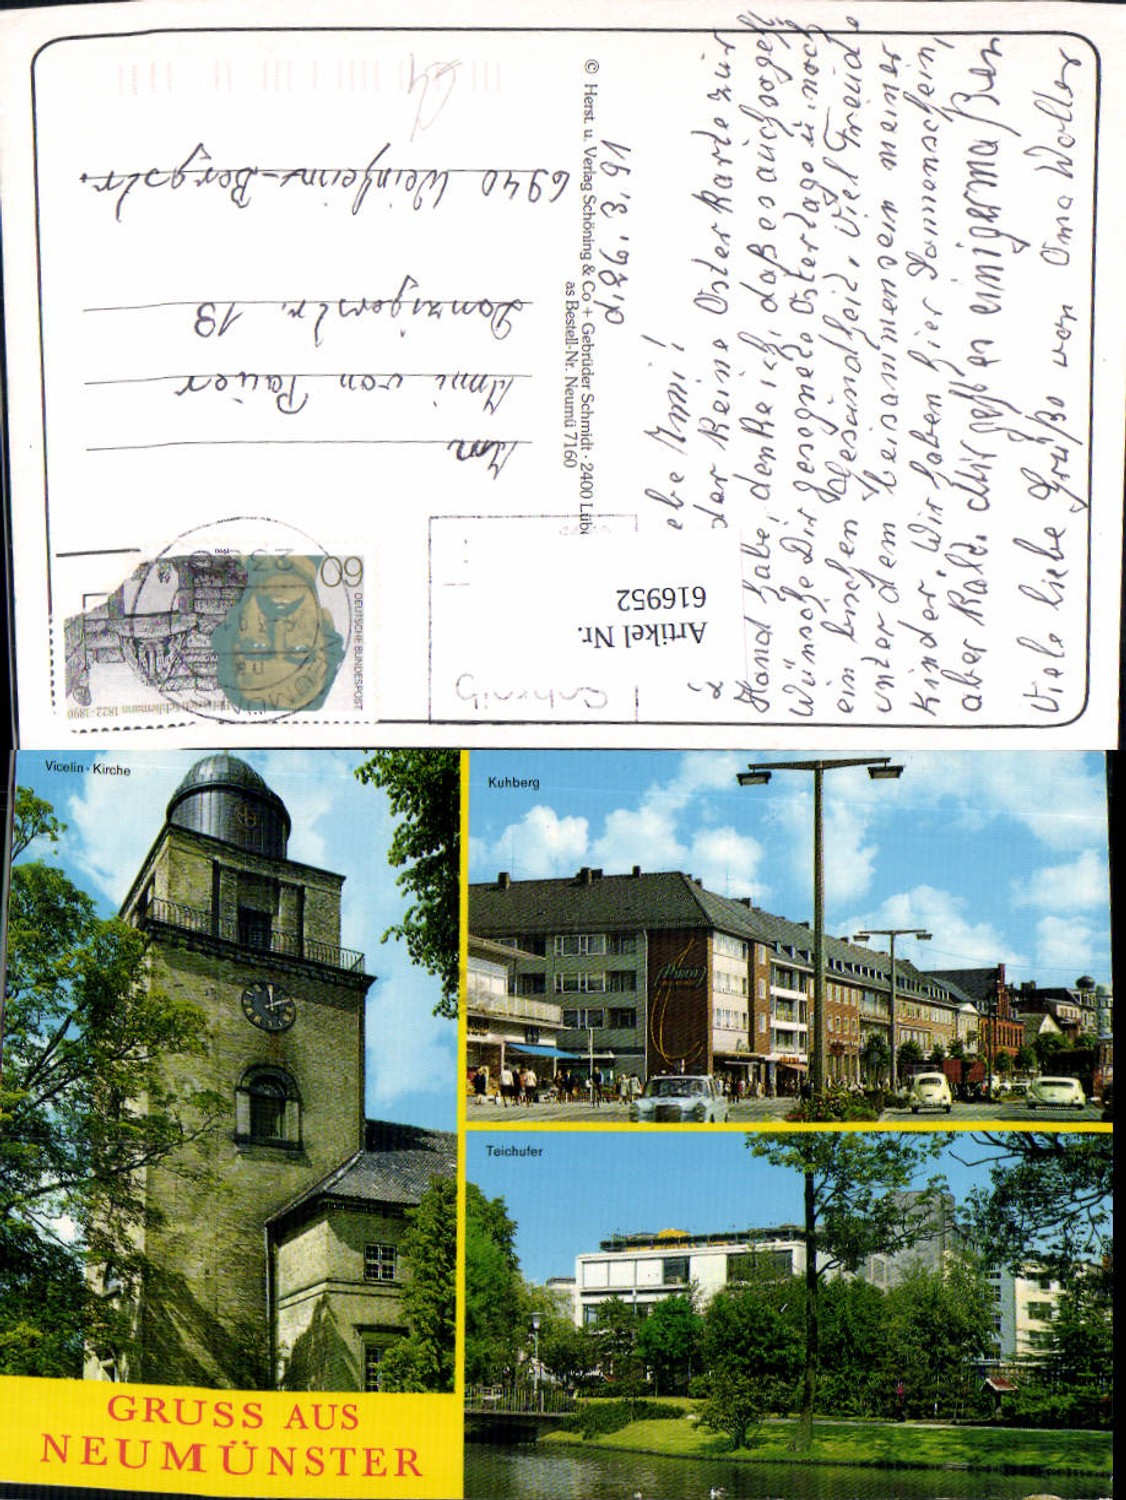 d. 26. 3. 91
ebe Anni!
da Keine Osterkarte zur
Hand habe, denke ich, daß es auch so geht
Wünsche Dir gesegnete Ostertage u. noch
ein bischen Gesundheit, viel Freude
unter dem beisammensein meiner
Kinder. Wir haben hier Sonnenschein,
aber Kalt. Mir geht es einigermaßen
Viele liebe Grüße von Oma Wolter
© Herst. u. Verlag Schöning & Co + Gebrüder Schmidt · 2400 Lüb
as Bestell-Nr. Neumü 7160
Artikel Nr.
616952
60
DEUTSCHE BUNDESPOST
Heinrich Schliemann 1822-1890
An
Anni von Pauer
Danzigerstr. 19
6940 Weinheim-Bergstr.
Vicelin - Kirche
Kuhberg
Teichufer
GRUSS AUS
NEUMÜNSTER